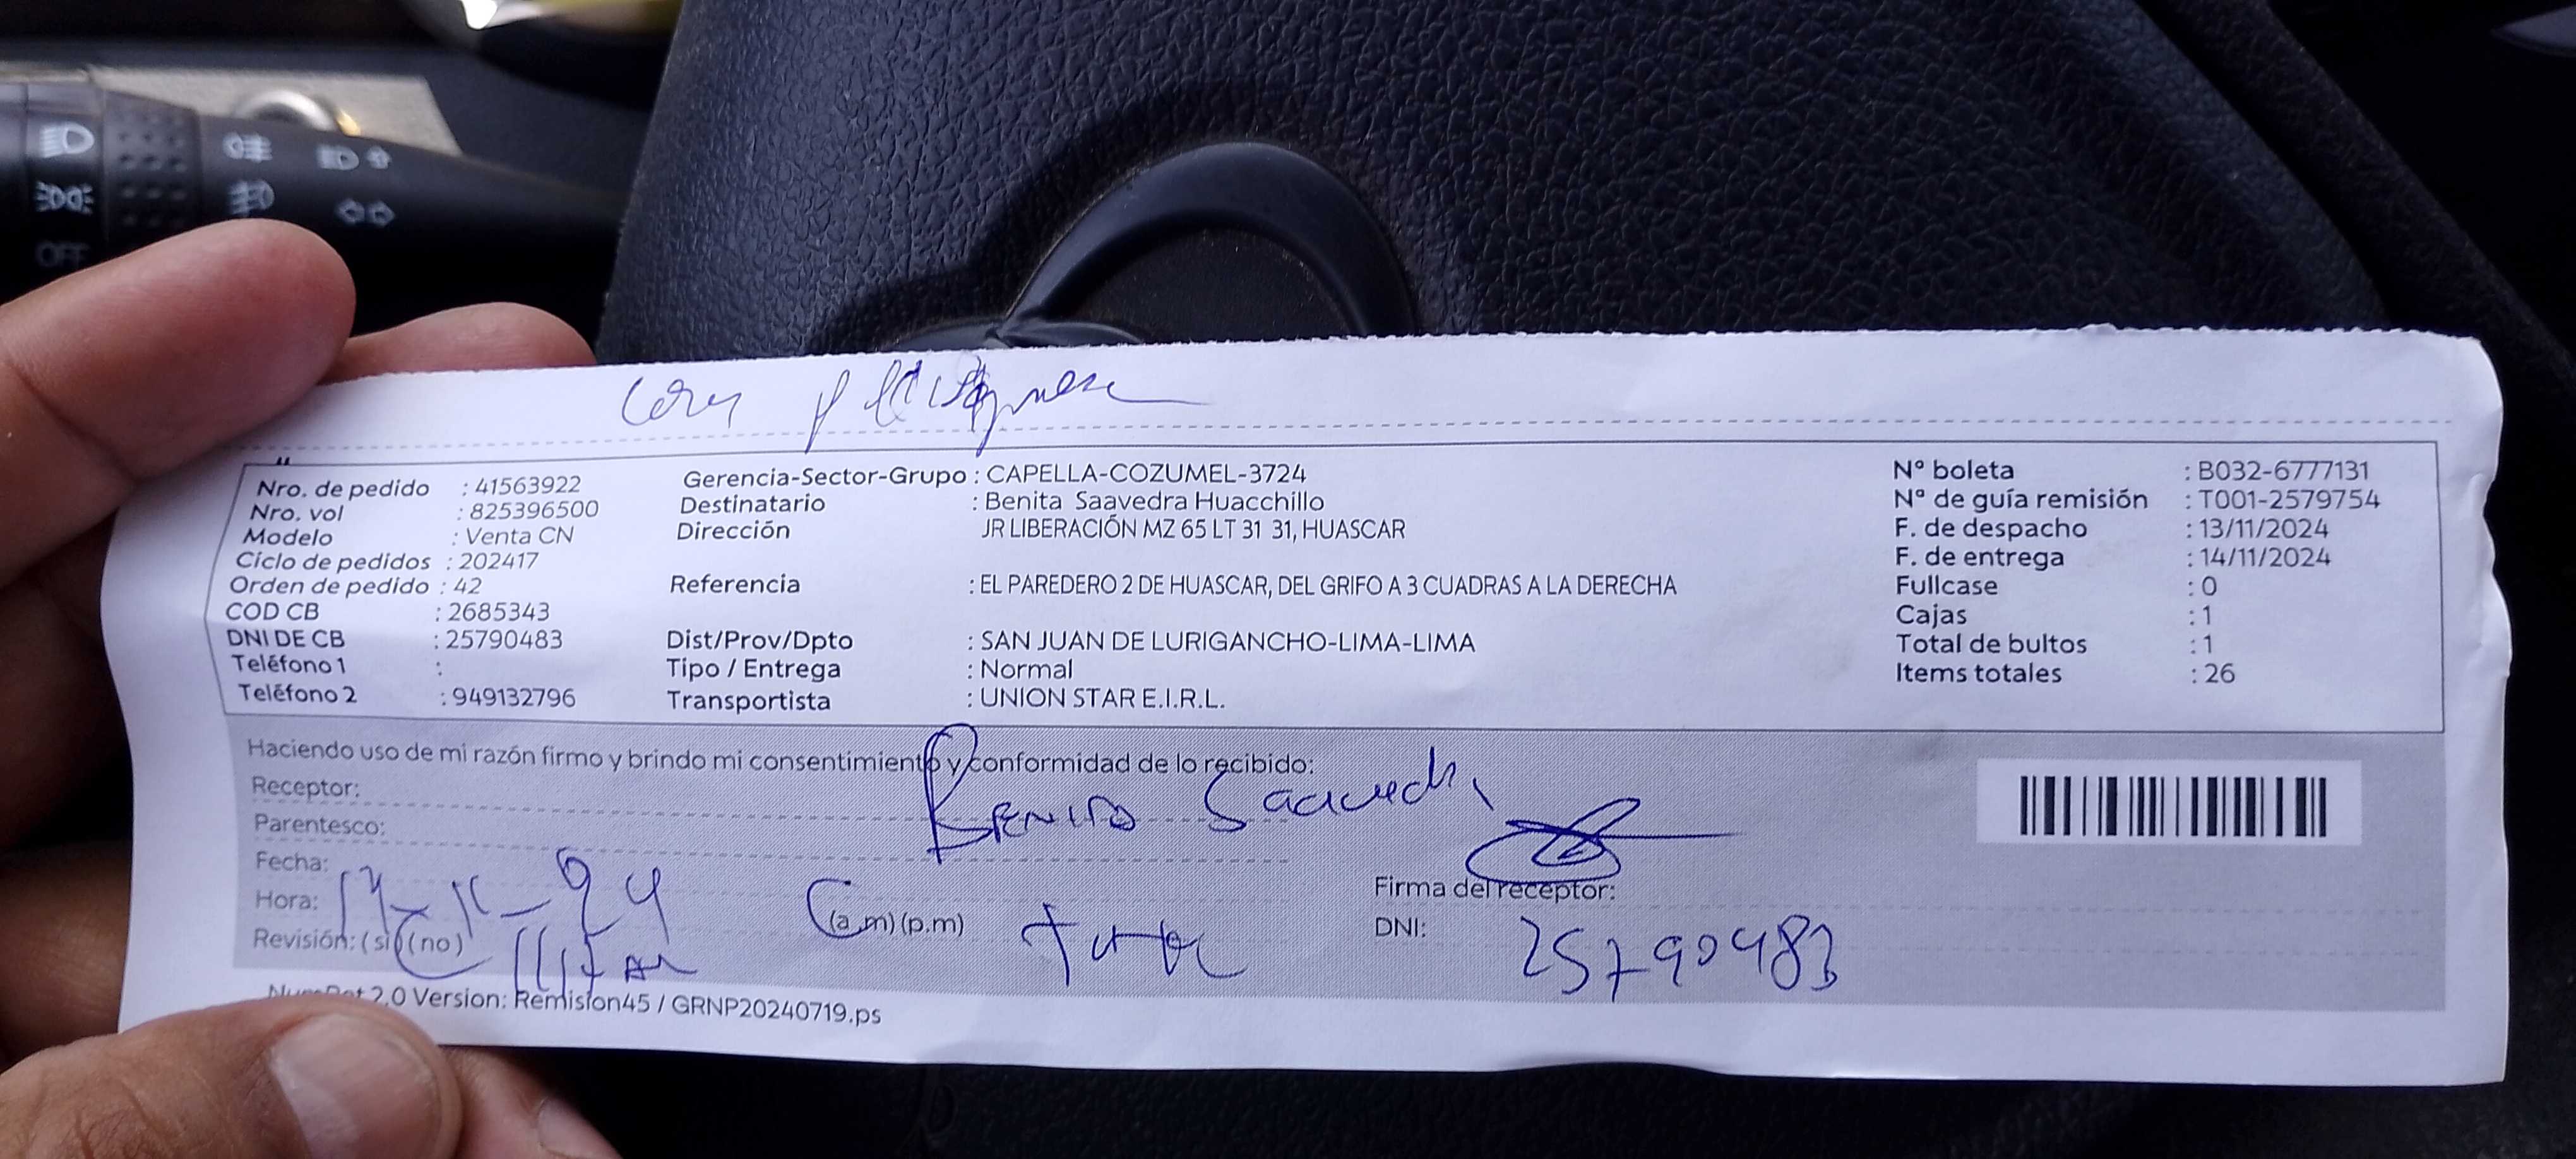 Nro. de pedido : 41563922
Nro. vol : 825396500
Modelo : Venta CN
Ciclo de pedidos : 202417
Orden de pedido : 42
COD CB : 2685343
DNI DE CB : 25790483
Teléfono 1 :
Teléfono 2 : 949132796
Gerencia-Sector-Grupo : CAPELLA-COZUMEL-3724
Destinatario : Benita Saavedra Huacchillo
Dirección JR LIBERACIÓN MZ 65 LT 31 31, HUASCAR
Referencia : EL PAREDERO 2 DE HUASCAR, DEL GRIFO A 3 CUADRAS A LA DERECHA
Dist/Prov/Dpto : SAN JUAN DE LURIGANCHO-LIMA-LIMA
Tipo / Entrega : Normal
Transportista : UNION STAR E.I.R.L.
Nº boleta : B032-6777131
Nº de guía remisión : T001-2579754
F. de despacho : 13/11/2024
F. de entrega : 14/11/2024
Fullcase : 0
Cajas : 1
Total de bultos : 1
Items totales : 26
Haciendo uso de mi razón firmo y brindo mi consentimiento y conformidad de lo recibido:
Receptor:
Parentesco:
Fecha:
Hora: (a.m) (p.m)
Revisión: (si) (no)
Firma del receptor:
DNI: 25790483
2.0 Version: Remision45 / GRNP20240719.ps
OFF